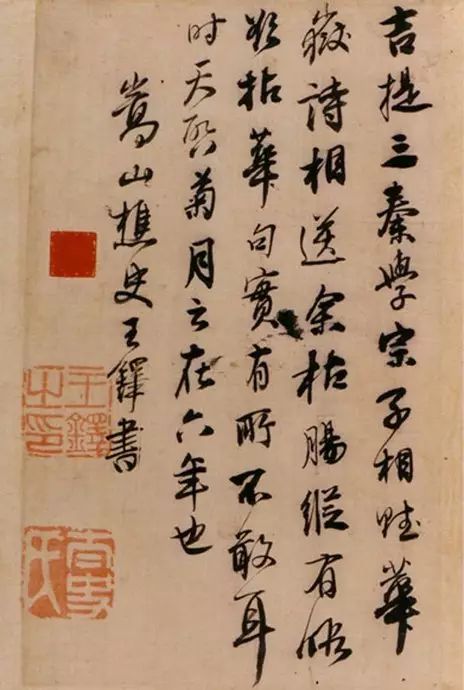 吉提三秦學宗子相賦華
嶽詩相送余枯腸縱有
欲拈華句實有所不敢耳
时天啓菊月之在六年也
嵩山樵史王鐸書
王鐸之印